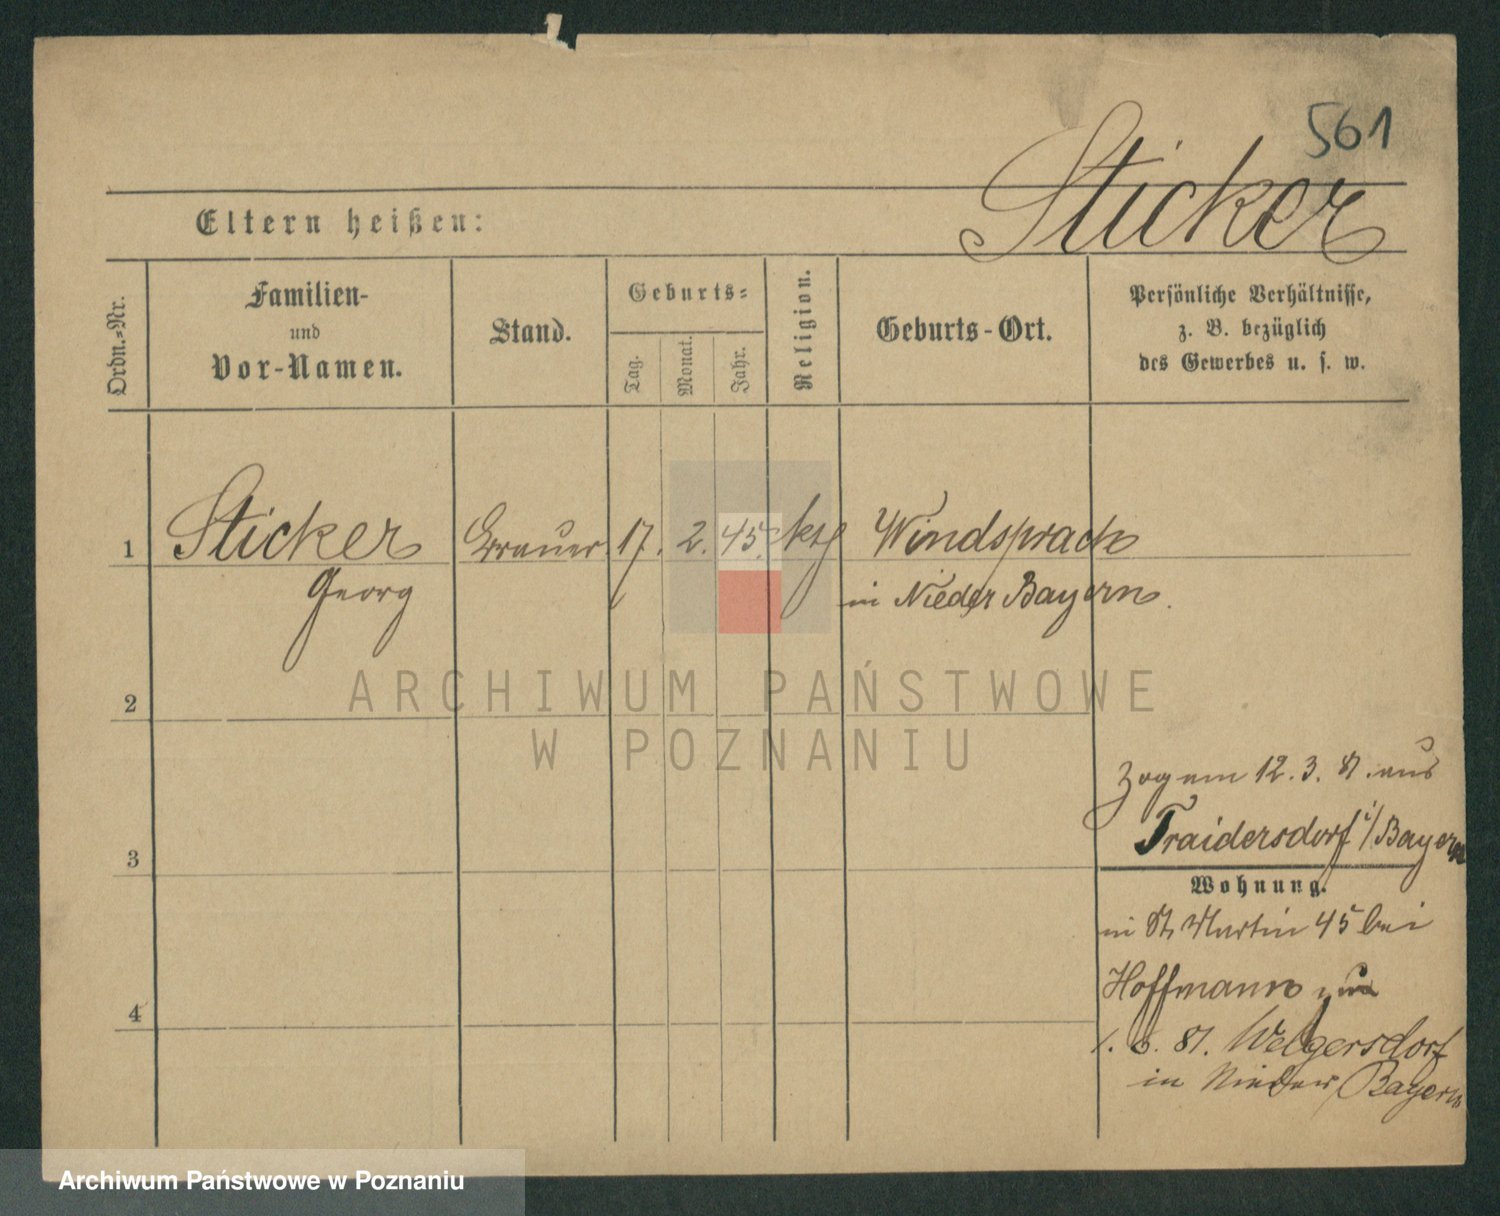 561
Sticker
Eltern heißen:
Ordn.-Nr.
Familien-
und
Vor-Namen.
Stand.
Geburts-
Tag.
Monat.
Jahr.
Religion.
Geburts-Ort.
Persönliche Verhältnisse,
z. B. bezüglich
des Gewerbes u. s. w.
1
Sticker
Georg
Brauer
17.
2.
45.
kth
Windsprach
in Nieder Bayern.
2
3
4
Zog am 12. 3. 81. aus
Traidersdorf i/Bayern
Wohnung.
in St. Martin 45 bei
Hoffmann
1. 6. 81. Welgersdorf
in Nieder Bayern
ARCHIWUM PAŃSTWOWE
W POZNANIU
Archiwum Państwowe w Poznaniu